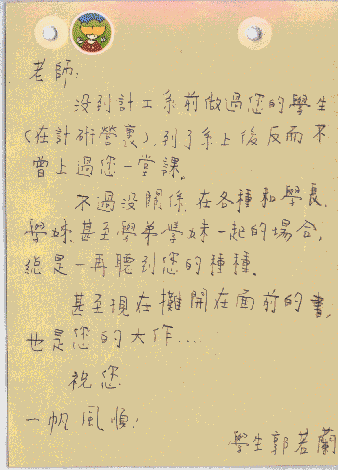 老師:
沒到計工系前做過您的學生
(在計術營裏),到了系上後反而不
曾上過您一堂課。
不過沒關係,在各種和學長、
學姊甚至學弟學妹一起的場合,
總是一再聽到您的種種。
甚至現在攤開在面前的書,
也是您的大作....
祝您
一帆風順!
學生郭若蘭